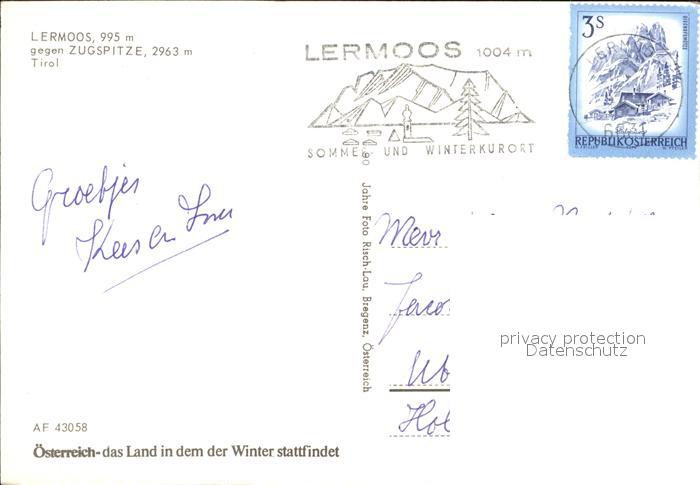 LERMOOS, 995 m
gegen ZUGSPITZE, 2963 m
Tirol
LERMOOS 1004 m
SOMMER UND WINTERKURORT
3S
REPUBLIK ÖSTERREICH
Groetjes
Kees en
Jahre Foto Risch-Lau, Bregenz, Österreich
Mevr
privacy protection
Datenschutz
AF 43058
Österreich-das Land in dem der Winter stattfindet